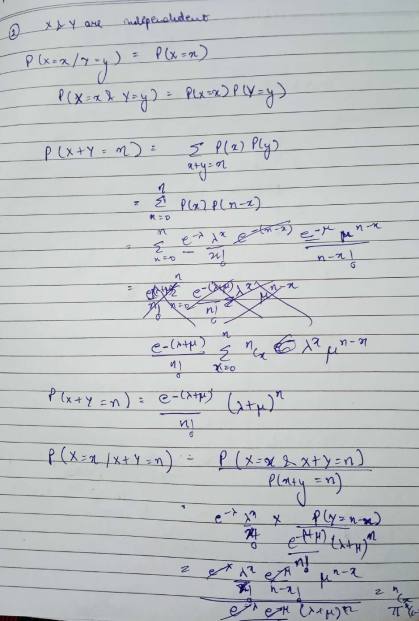 ② X & Y are independent
P(X=x/Y=y) = P(X=x)
P(X=x & Y=y) = P(X=x) P(Y=y)
P(X+Y=n) = Σ_{x+y=n} P(x) P(y)
= Σ_{x=0}^{n} P(x) P(n-x)
= Σ_{x=0}^{n} e^{-λ} λ^x / x! e^{-μ} μ^{n-x} / n-x!
=
e^{-(λ+μ)} / n! Σ_{x=0}^{n} ⁿCₓ λ^x μ^{n-x}
P(X+Y=n) = e^{-(λ+μ)} / n! (λ+μ)^n
P(X=x/X+Y=n) = P(X=x & X+Y=n) / P(X+Y=n)
e^{-λ} λ^x / x! × P(Y=n-x) / e^{-(λ+μ)} (λ+μ)^n
n!
= e^{-λ} λ^x / x! e^{-μ} μ^{n-x} / n-x!
e^{-λ} e^{-μ} (λ+μ)^n = ⁿCₓ